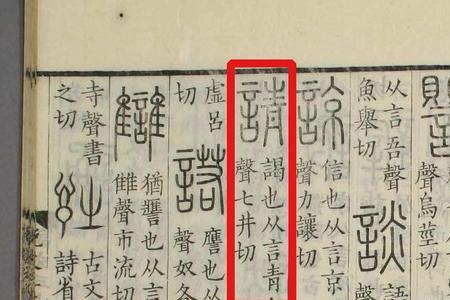 聲烏莖切
从言吾聲
魚舉切
談
聲
諒
信也从言京
聲力讓切
請
謁也从言青
聲七井切
虛呂
切
諾
譍也
聲奴各
讎
猶譍也从言
雔聲市流切
寺聲書
之切
古文
詩省